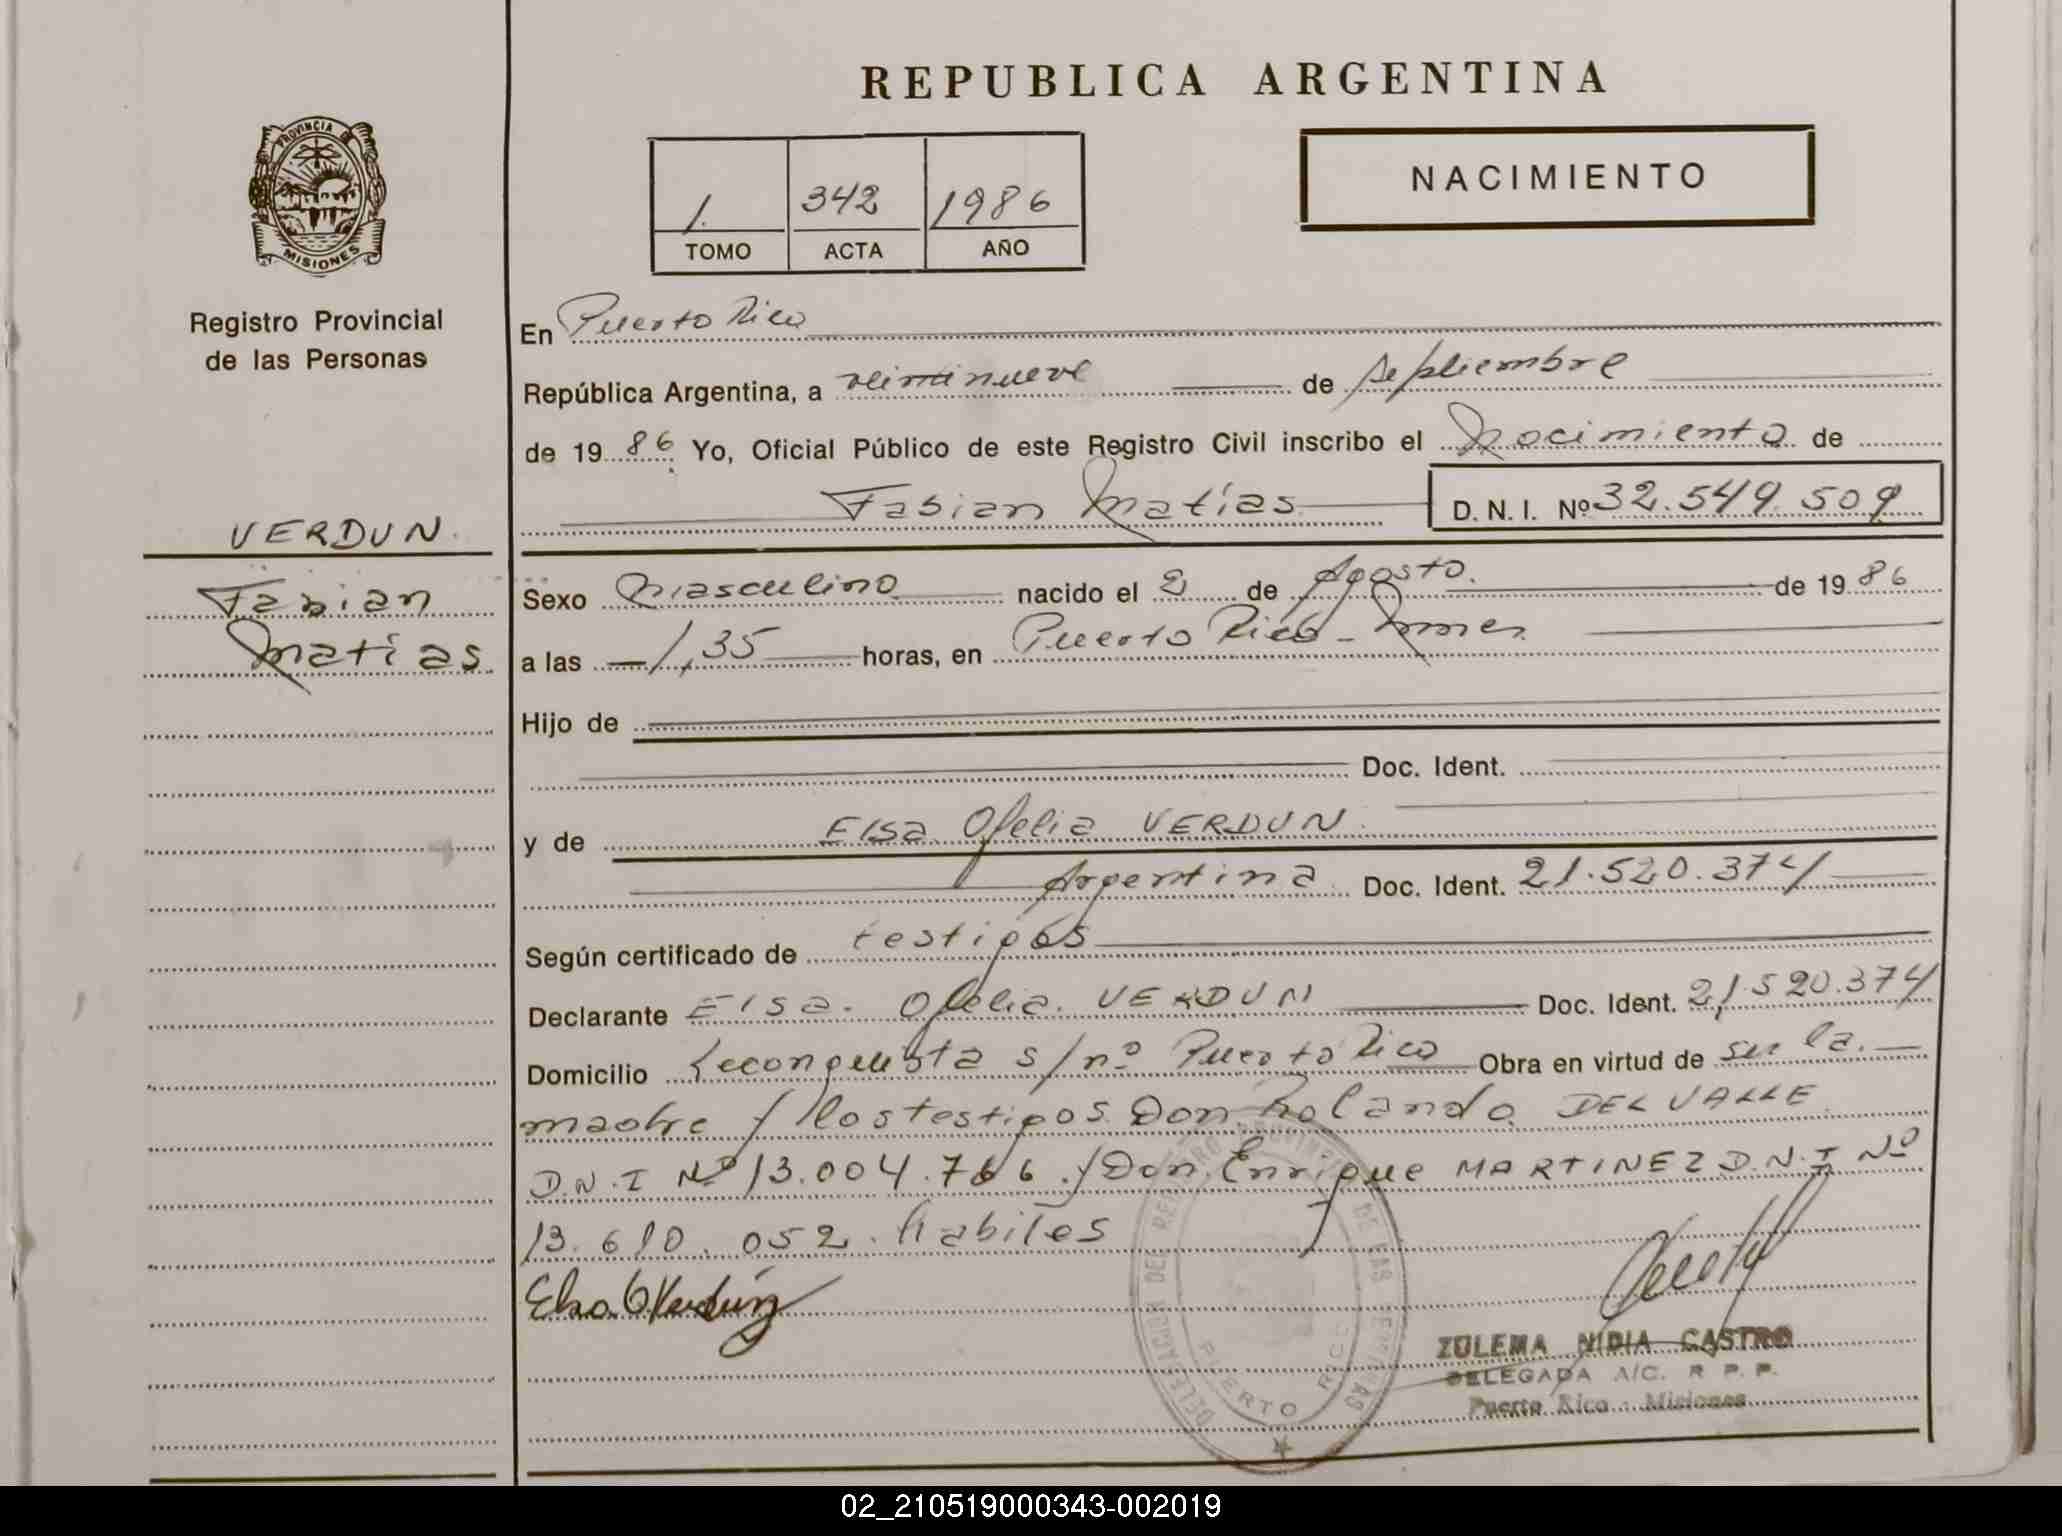 REPUBLICA ARGENTINA
PROVINCIA DE
MISIONES
Registro Provincial
de las Personas
1. 342 1986
TOMO ACTA AÑO
NACIMIENTO
En Puerto Rico
República Argentina, a veintinueve de septiembre
de 19 86 Yo, Oficial Público de este Registro Civil inscribo el Nacimiento de
Fabian Matías D. N. I. Nº 32.549.509
VERDUN.
Fabian
Matias
Sexo Masculino nacido el 2 de Agosto. de 19 86
a las 1,35 horas, en Puerto Rico - Mnes.
Hijo de
Doc. Ident.
y de Elsa Ofelia VERDUN
Argentina Doc. Ident. 21.520.374
Según certificado de testigos
Declarante Elsa. Ofelia. VERDUN Doc. Ident. 21.520.374
Domicilio Reconquista s/nº Puerto Rico Obra en virtud de ser la
madre y los testigos Don Rolando DEL VALLE
D.N.I Nº 13.004.766 y Don Enrique MARTINEZ D.N.I Nº
13.610.052. habiles
Elsa O Verdún
DELEGACION DEL REGISTRO PROVINCIAL DE LAS PERSONAS
PUERTO RICO
ZULEMA NIDIA CASTRO
DELEGADA A/C. R P. P.
Puerto Rico - Misiones
02_210519000343-002019